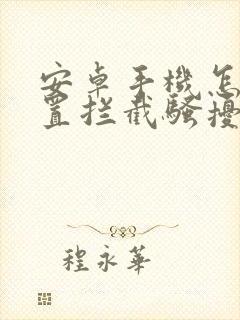 安卓手機怎
置拦截騷擾
程永華